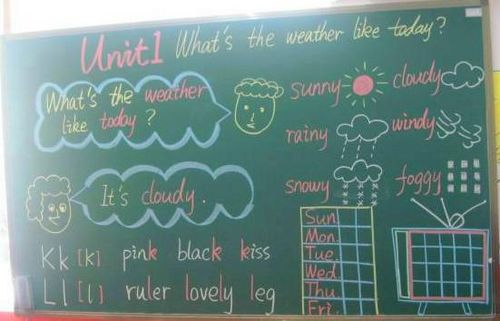 Unit1 What's the weather like today?
What's the weather
like today?
sunny
cloudy
rainy
windy
It's cloudy.
snowy
foggy
Kk [k] pink black kiss
Ll [l] ruler lovely leg
Sun.
Mon.
Tue.
Wed.
Thu.
Fri.